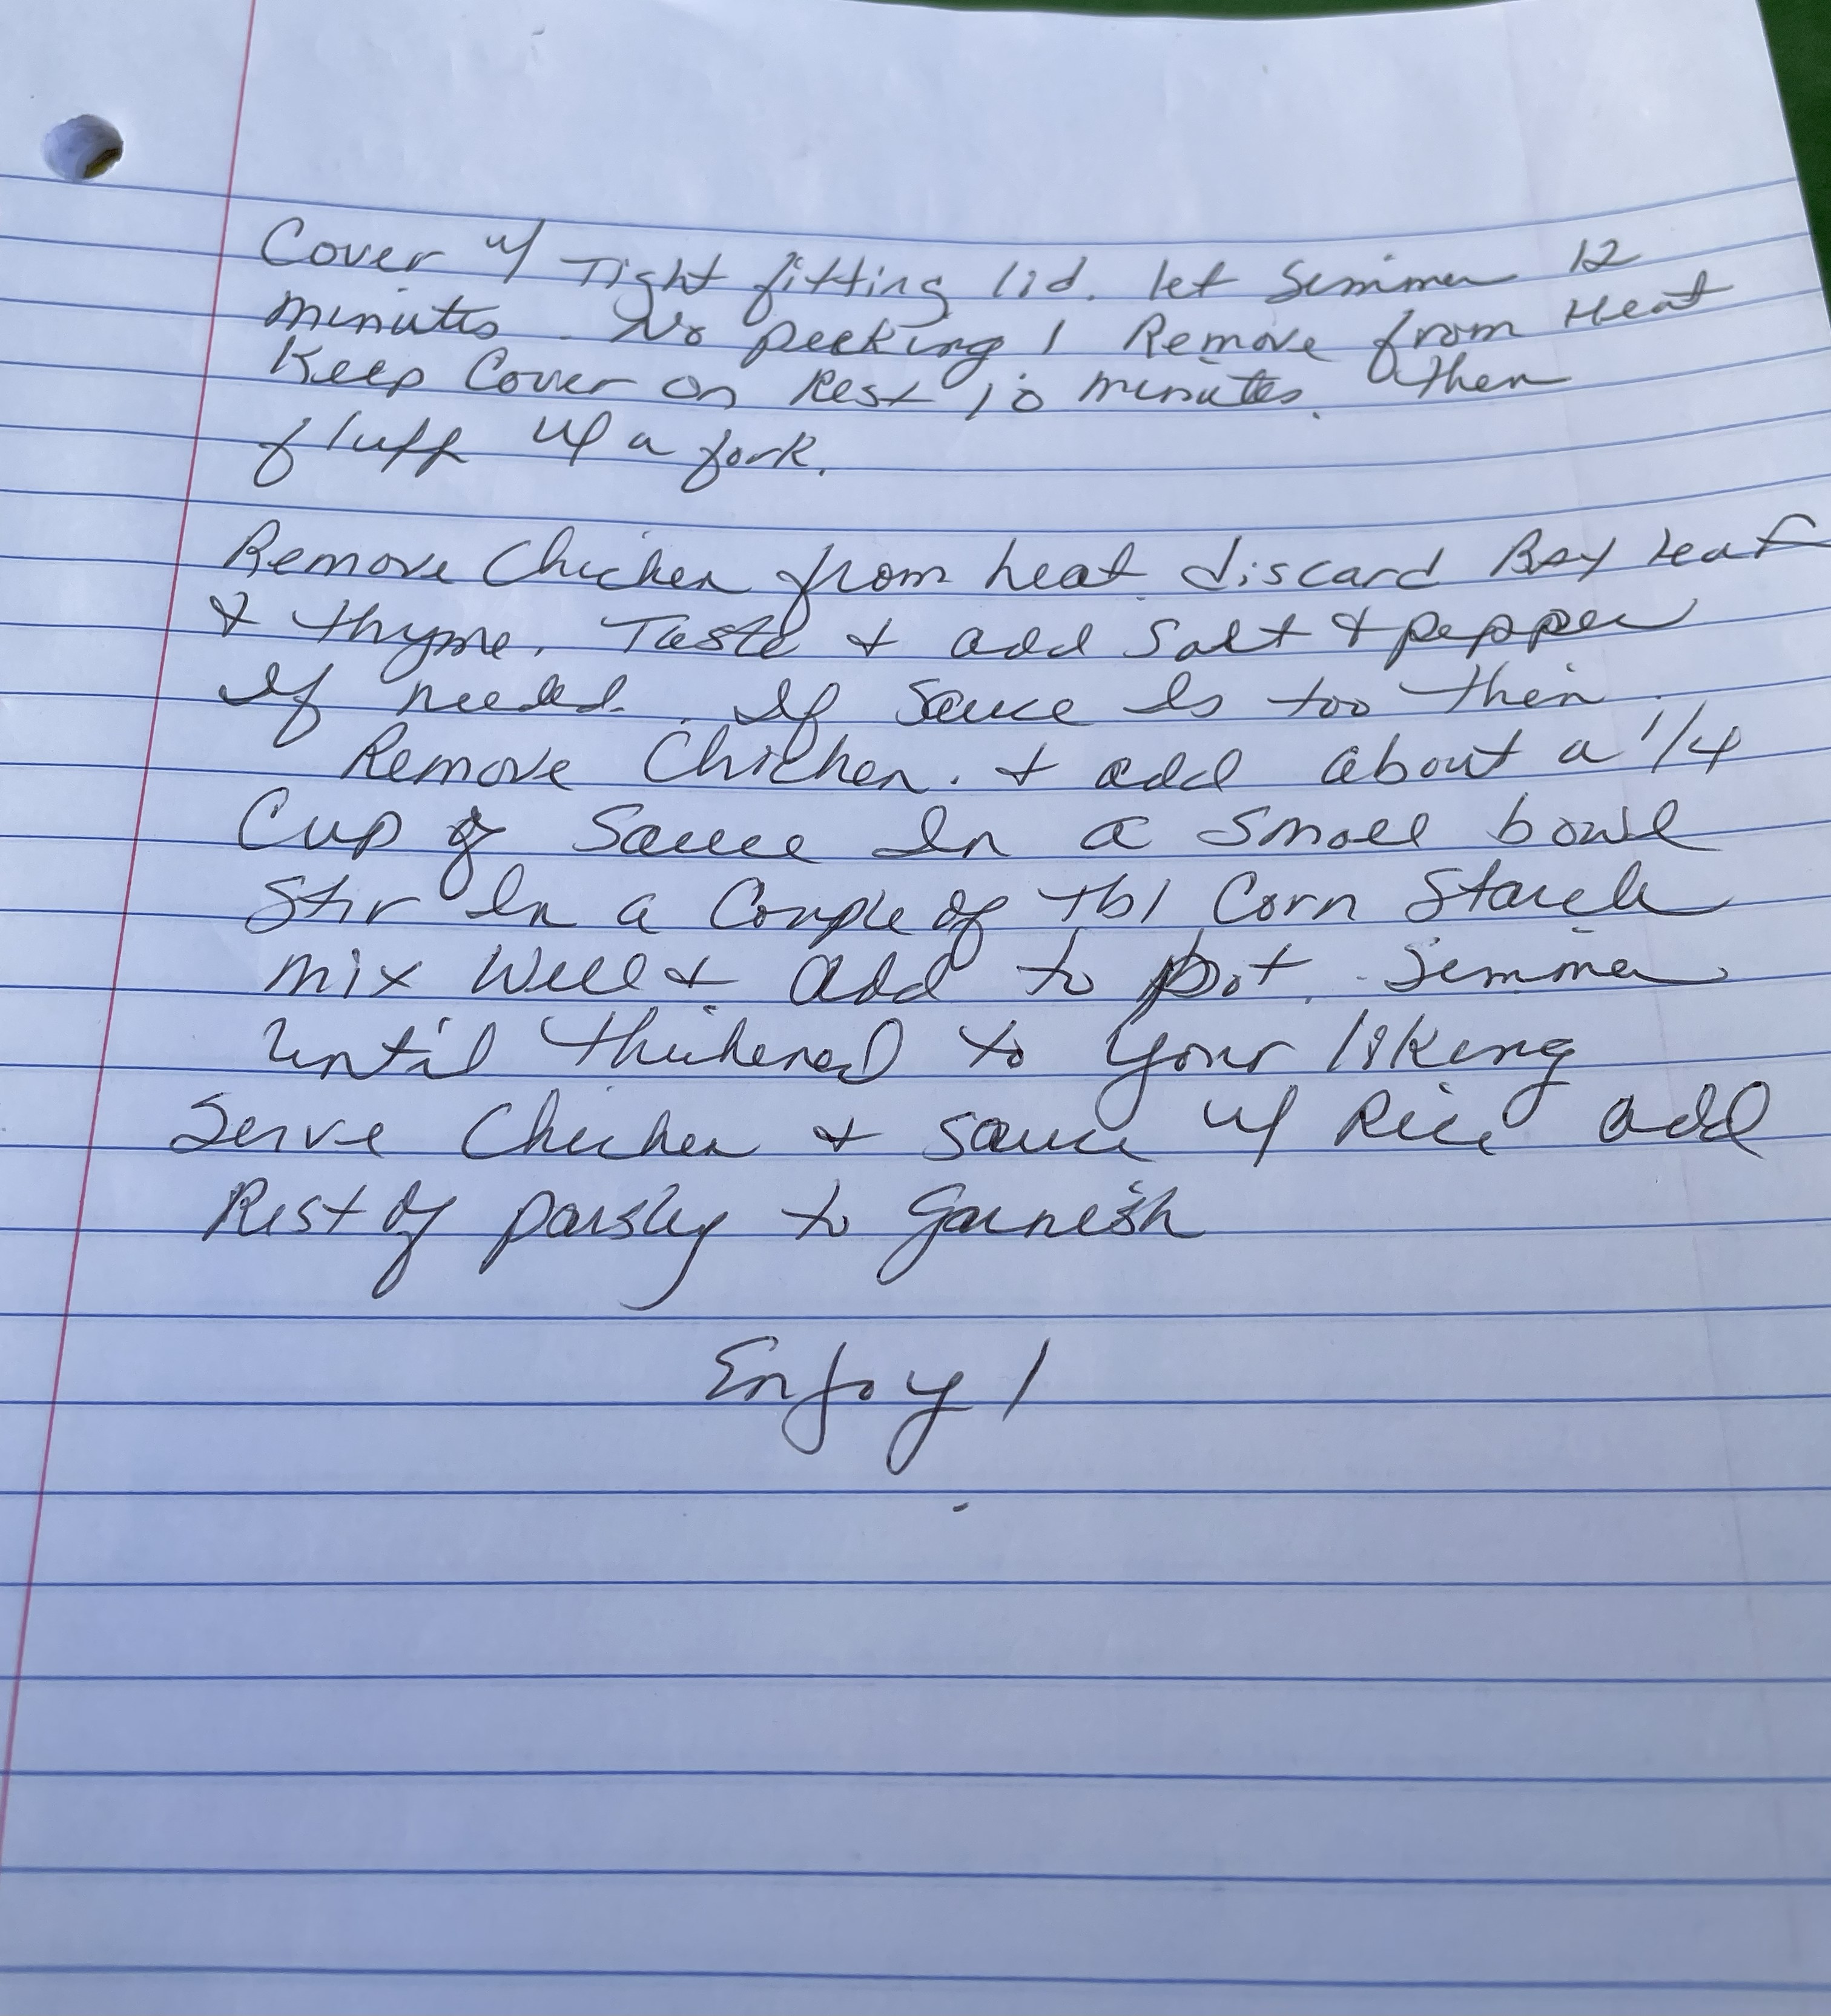 Cover w/ Tight fitting lid. let Simmer 12
minutes. No peeking! Remove from Heat
Keep Cover on Rest 10 minutes. then
fluff w/ a fork.
Remove Chicken from heat discard Bay Leaf
& thyme. Taste & add Salt & pepper
If needed. If Sauce Is too thin
Remove Chicken. & add about a 1/4
Cup of Sauce In a Small bowl
Stir In a Couple of tbl Corn Starch
mix Well & add to pot. Simmer
Until thickened to your liking
Serve Chicken & Sauce w/ Rice add
Rest of parsley to garnish
Enjoy!